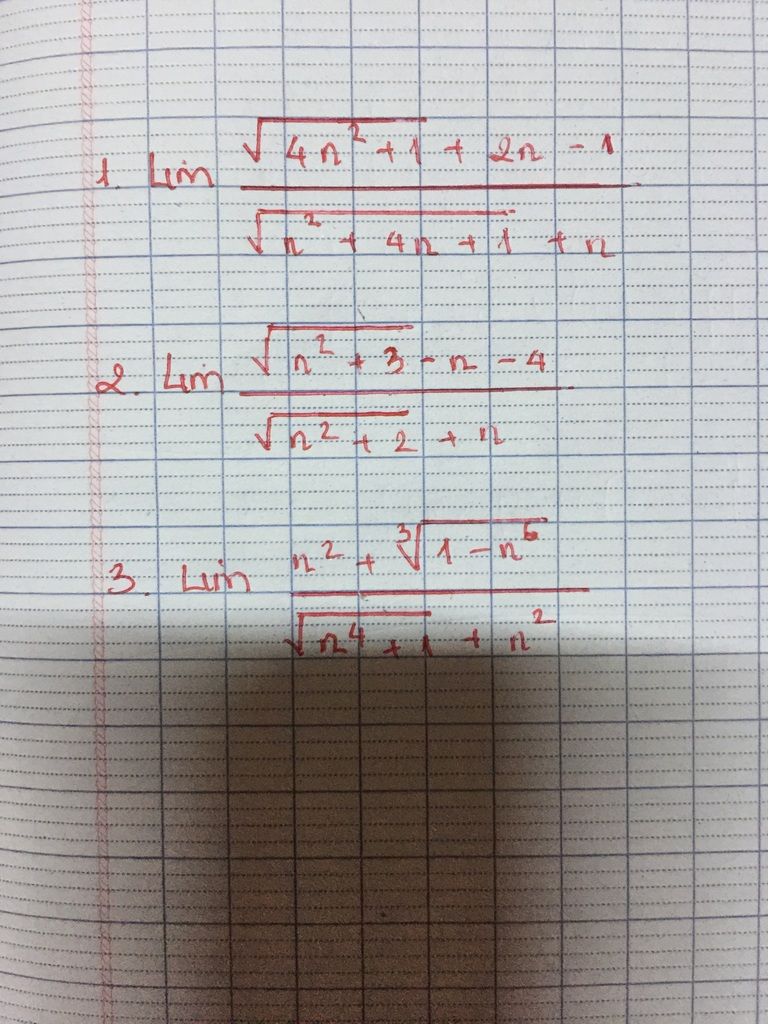 1. Lim (√(4n² + 1) + 2n - 1) / (√(n² + 4n + 1) + n)
2. Lim (√(n² + 3) - n - 4) / (√(n² + 2) + n)
3. Lim (n² + ³√(1 - n⁶)) / (√(n⁴ + 1) + n²)